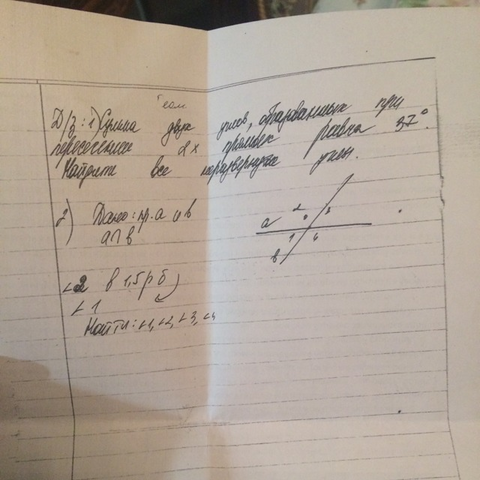 геом
Д/з: 1) Сумма двух углов, образованных при
пересечении 2х прямых равна 37°.
Найдите все неразвернутые углы.
2) Дано: пр. а и в
а∩в
∠2 в 1,5 р б
∠1
Найти: ∠1, ∠2, ∠3, ∠4
а 2 3
1 4
в